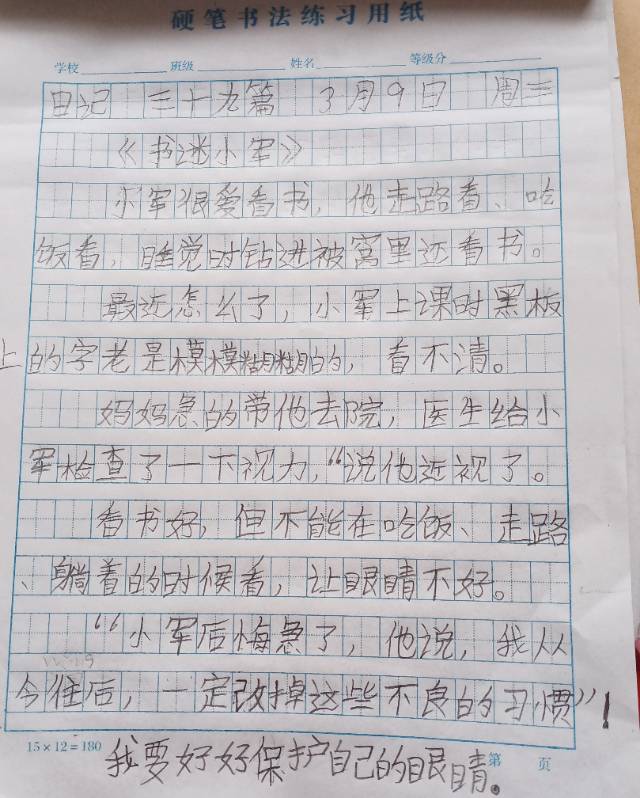 硬笔书法练习用纸
学校 班级 姓名 等级分
日记 三十九篇 3月9日 周三
《书迷小军》
小军很爱看书，他走路看、吃
饭看，睡觉时钻进被窝里还看书。
最近怎么了，小军上课时黑板
上的字老是模模糊糊的，看不清。
妈妈急的带他去院，医生给小
军检查了一下视力，“说他近视了。
看书好，但不能在吃饭、走路
、躺着的时候看，让眼睛不好。
“小军后悔急了，他说，我从
今住后，一定改掉这些不良的习惯”！
15×12=180 第 页
我要好好保护自己的眼睛。